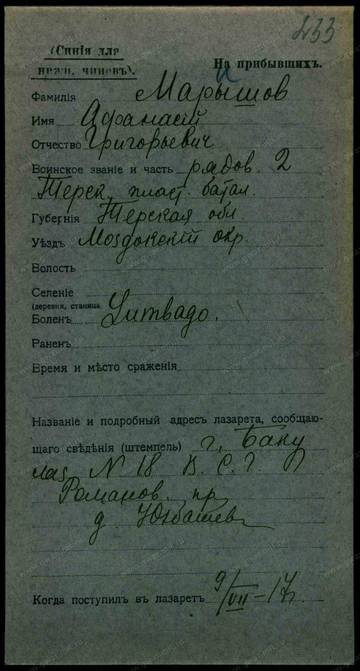 233
(Синія для
нижн. чиновъ). На прибывшихъ.
Фамилія Марышов
Имя Афанасій
Отчество Григорьевич
Воинское званіе и часть рядов. 2
Терск. пласт. батал.
Губернія Терская обл
Уѣздъ Моздокскій окр.
Волость
Селеніе
(деревня, станица
Боленъ
Раненъ
Время и мѣсто сраженія
Названіе и подробный адресъ лазарета, сообщаю-
щаго свѣдѣнія (штемпель) г. Баку
лаз. N 18 В. С. Г.
Романов. пр
д.
Когда поступилъ въ лазаретъ 9/VII-17г.